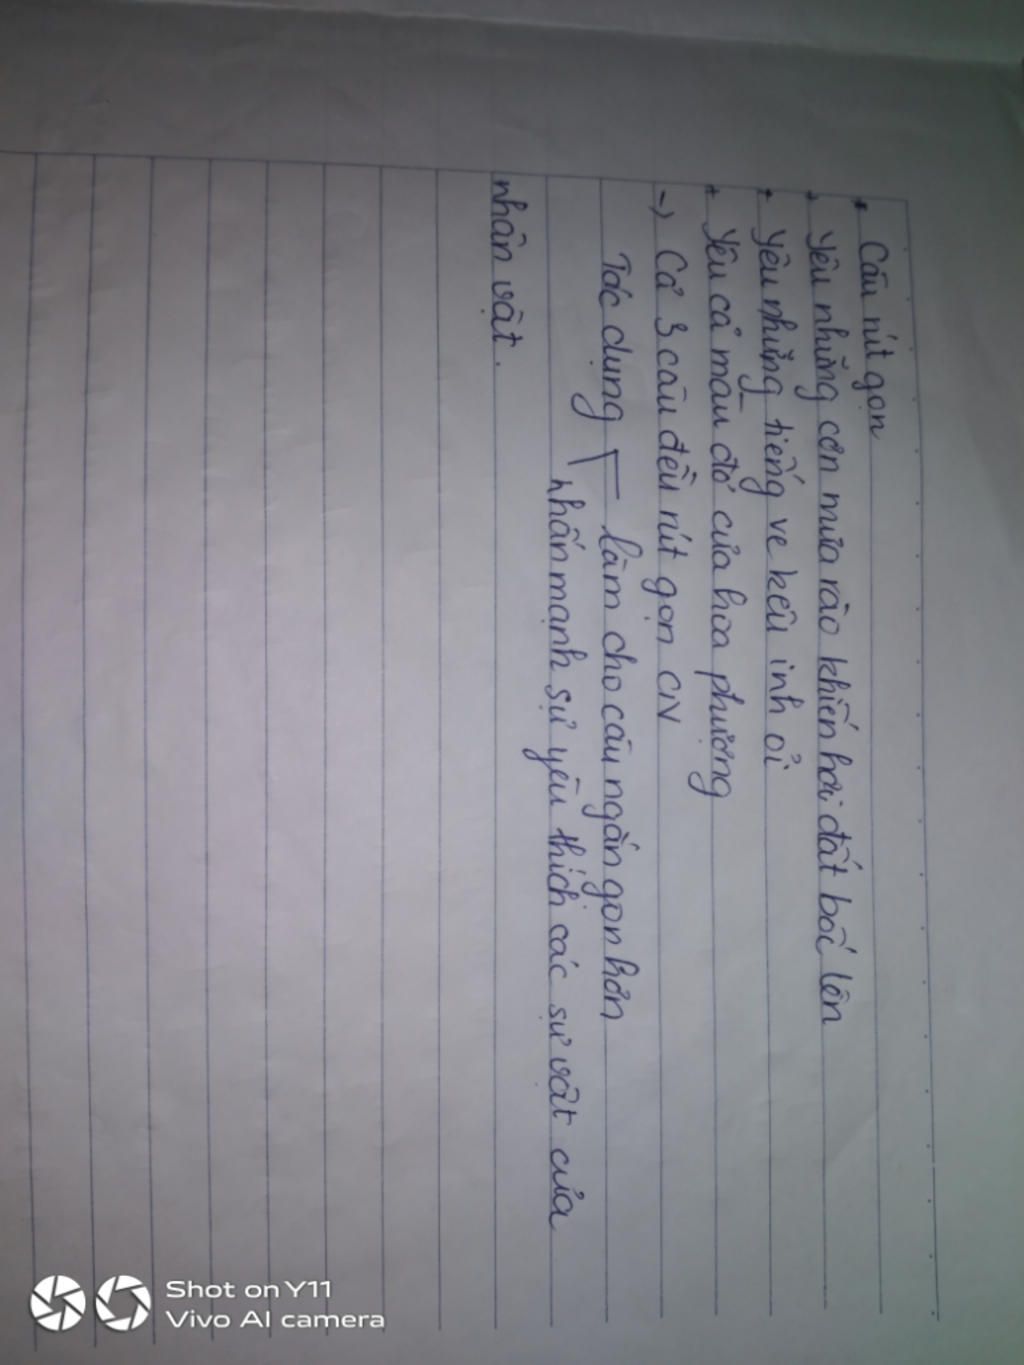 * Câu rút gọn
+ Yêu những cơn mưa rào khiến hơi đất bốc lên
+ Yêu những tiếng ve kêu inh ỏi
+ Yêu cả màu đỏ của hoa phượng
-> Cả 3 câu đều rút gọn CN
Tác dụng làm cho câu ngắn gọn hơn
nhấn mạnh sự yêu thích các sự vật của
nhân vật.
Shot on Y11
Vivo AI camera